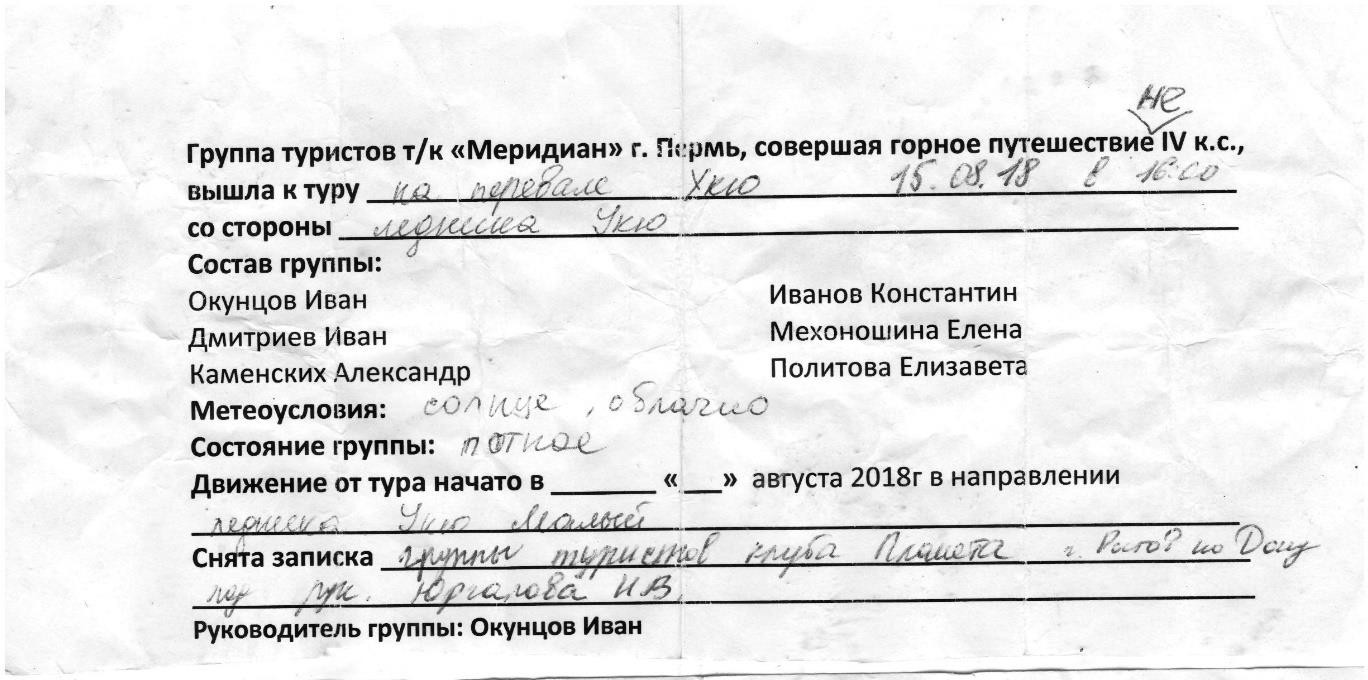 не
Группа туристов т/к «Меридиан» г. Пермь, совершая горное путешествие IV к.с.,
вышла к туру на перевале Укю 15.08.18 в 16:00
со стороны ледника Укю
Состав группы:
Окунцов Иван Иванов Константин
Дмитриев Иван Мехоношина Елена
Каменских Александр Политова Елизавета
Метеоусловия: солнце, облачно
Состояние группы: потное
Движение от тура начато в _______ «___» августа 2018г в направлении
ледника Укю Малый
Снята записка группы туристов клуба Планета г. Ростов на Дону
под рук. Н.В.
Руководитель группы: Окунцов Иван